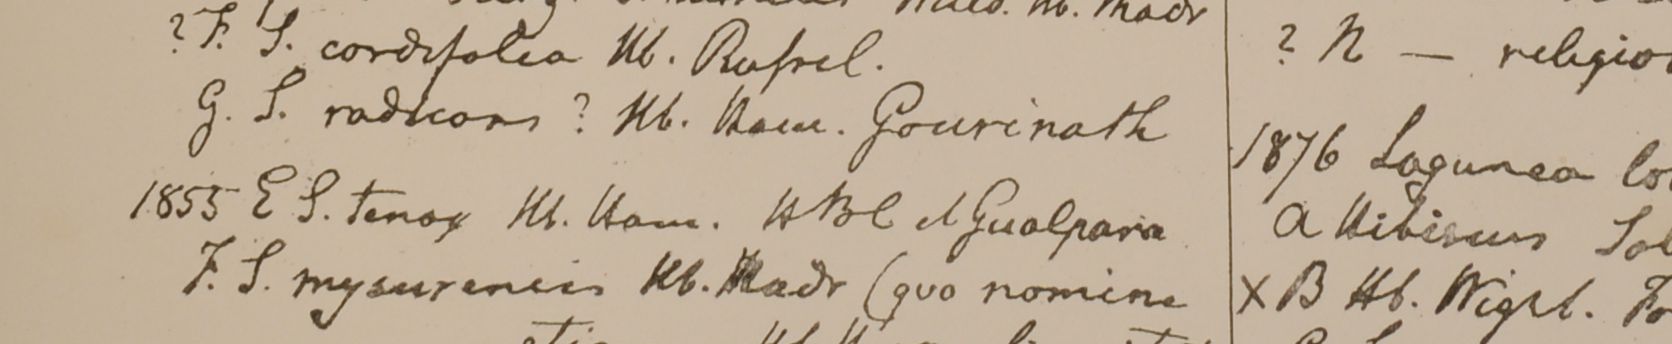 Hb. Madr
? F. S. cordifolia Hb. Russel.
G. S. radicans ? Hb. Ham. Gourinath
1855 E S. tenax Hb. Ham. HBC et Gualpara
F. S. mysurensis Hb. Madr (quo nomine
? N — religio
1876 Lagunea lo
A Hibiscus Sol
X B Hb. Wight.